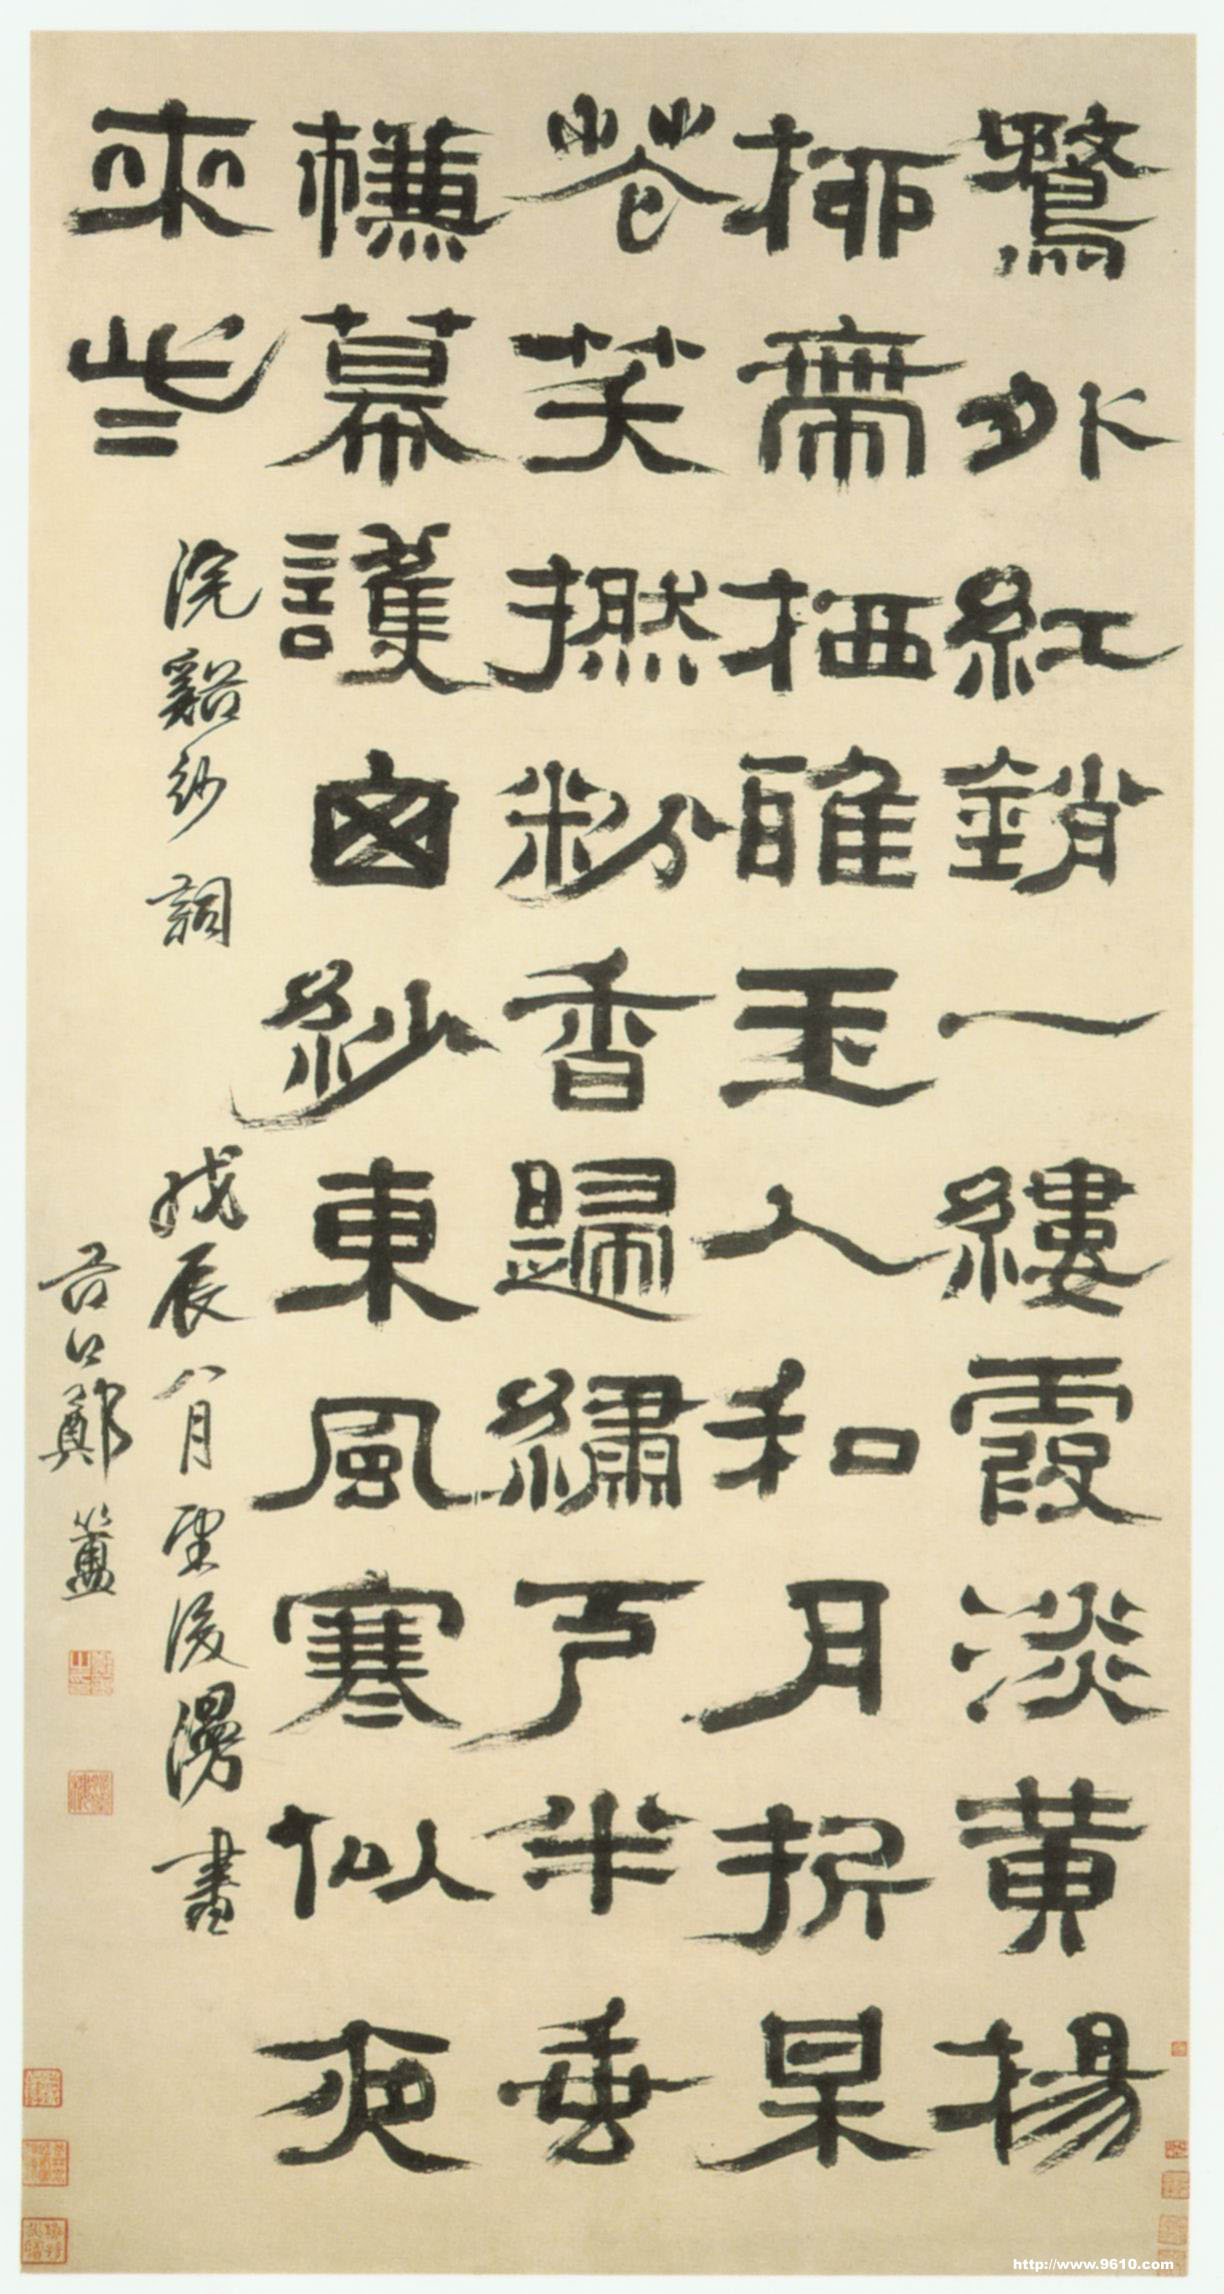 鶩外紅銷一縷霞淡黃揚
柳帶栖雅玉人和月折呆
花笑撚粉香歸繡戶半垂
槏幕護囱紗東風寒似夜
來些
浣谿紗詞 戊辰八月望後漫書
谷口鄭簠
http://www.9610.com